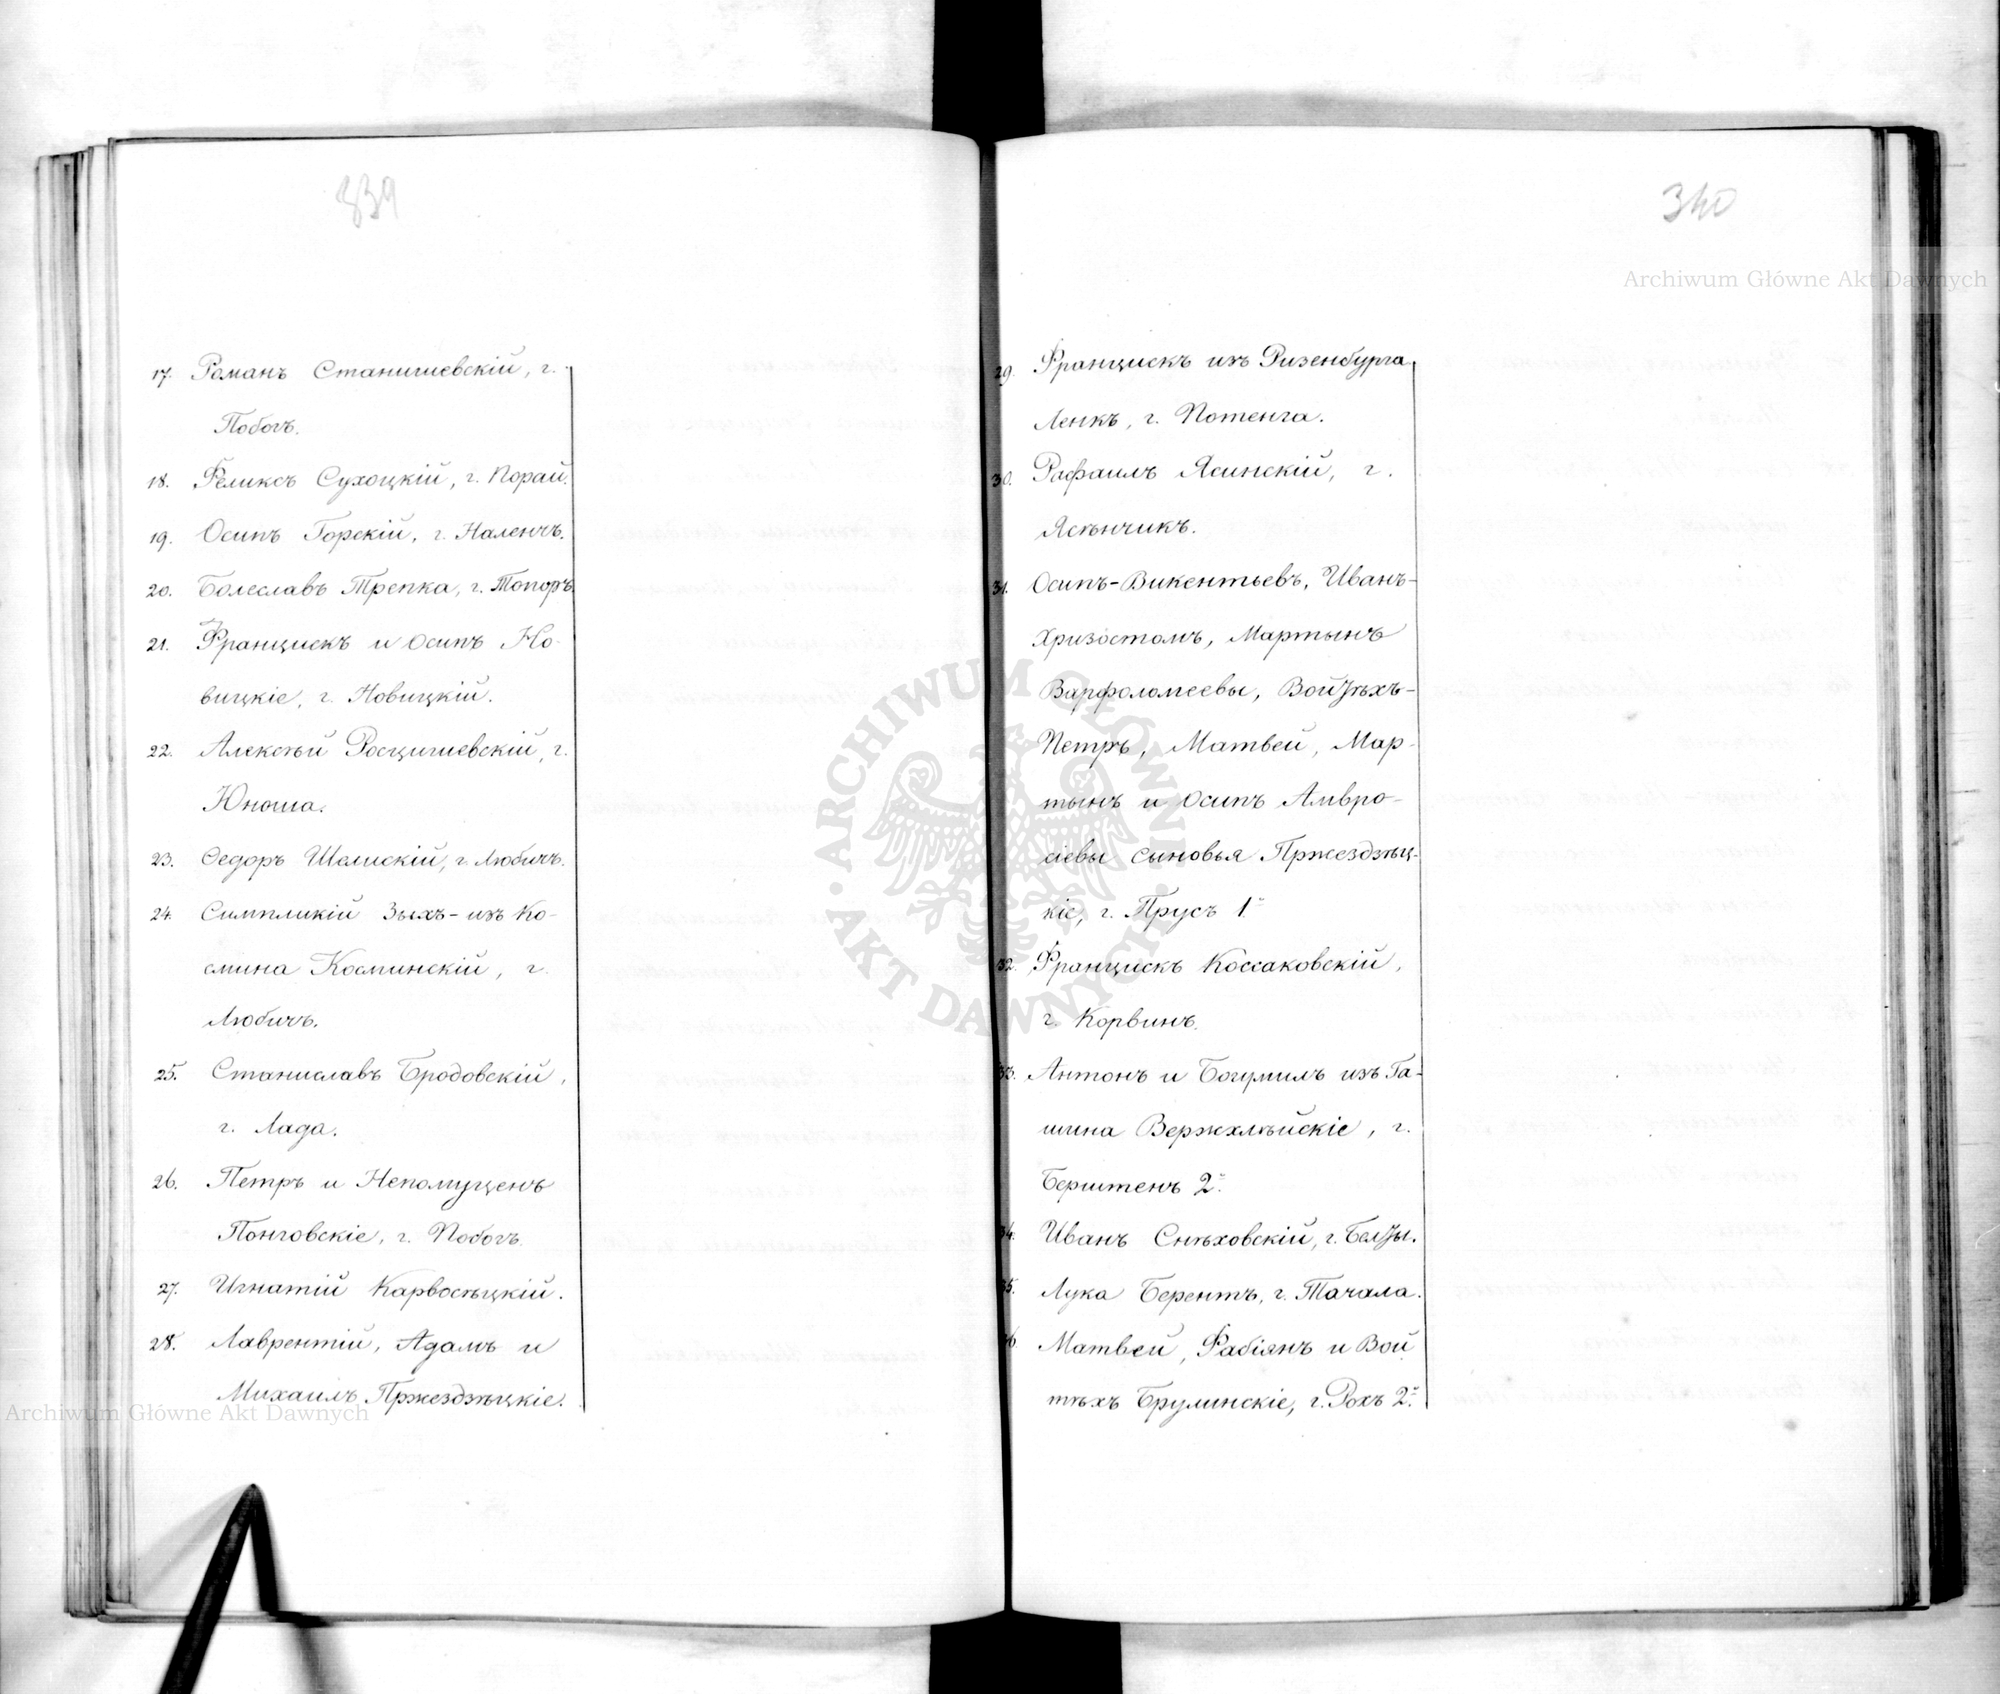 339
17. Романъ Станишевскій, г.
Побогъ.
18. Феликсъ Сухоцкій, г. Порай.
19. Осипъ Горскій, г. Наленчъ.
20. Болеславъ Трепка, г. Топоръ.
21. Францискъ и Осипъ Но-
вицкіе, г. Новицкій.
22. Алексѣй Росцишевскій, г.
Юноша.
23. Ѳедоръ Шамскій, г. Любичъ.
24. Симпликій Зыхъ-изъ Ко-
смина Косминскій, г.
Любичъ.
25. Станиславъ Бродовскій,
г. Лада.
26. Петръ и Непомуценъ
Понговскіе, г. Побогъ.
27. Игнатій Карвосѣцкій.
28. Лаврентій, Адамъ и
Михаилъ Пржездзѣцкіе.
340
29. Францискъ изъ Ризенбурга
Ленкъ, г. Потенга.
30. Рафаилъ Ясинскій, г.
Ясѣнчикъ.
31. Осипъ-Викентьевъ, Иванъ-
Хризостомъ, Мартынъ
Варфоломеевы, Войтѣхъ-
Петръ, Матвей, Мар-
тынъ и Осипъ Амвро-
сіевы сыновья Пржездзѣц-
кіе, г. Прусъ 1.
32. Францискъ Коссаковскій,
г. Корвинъ.
33. Антонъ и Богумилъ изъ Га-
шина Вержхлѣйскіе, г.
Берштенъ 2.
34. Иванъ Снѣховскій, г. Белты.
35. Лука Берентъ, г. Тачала.
36. Матвей, Фабіянъ и Вой
тѣхъ Брулинскіе, г. Рохъ 2.
Archiwum Główne Akt Dawnych
ARCHIWUM GŁÓWNE · AKT DAWNYCH ·
Archiwum Główne Akt Dawnych